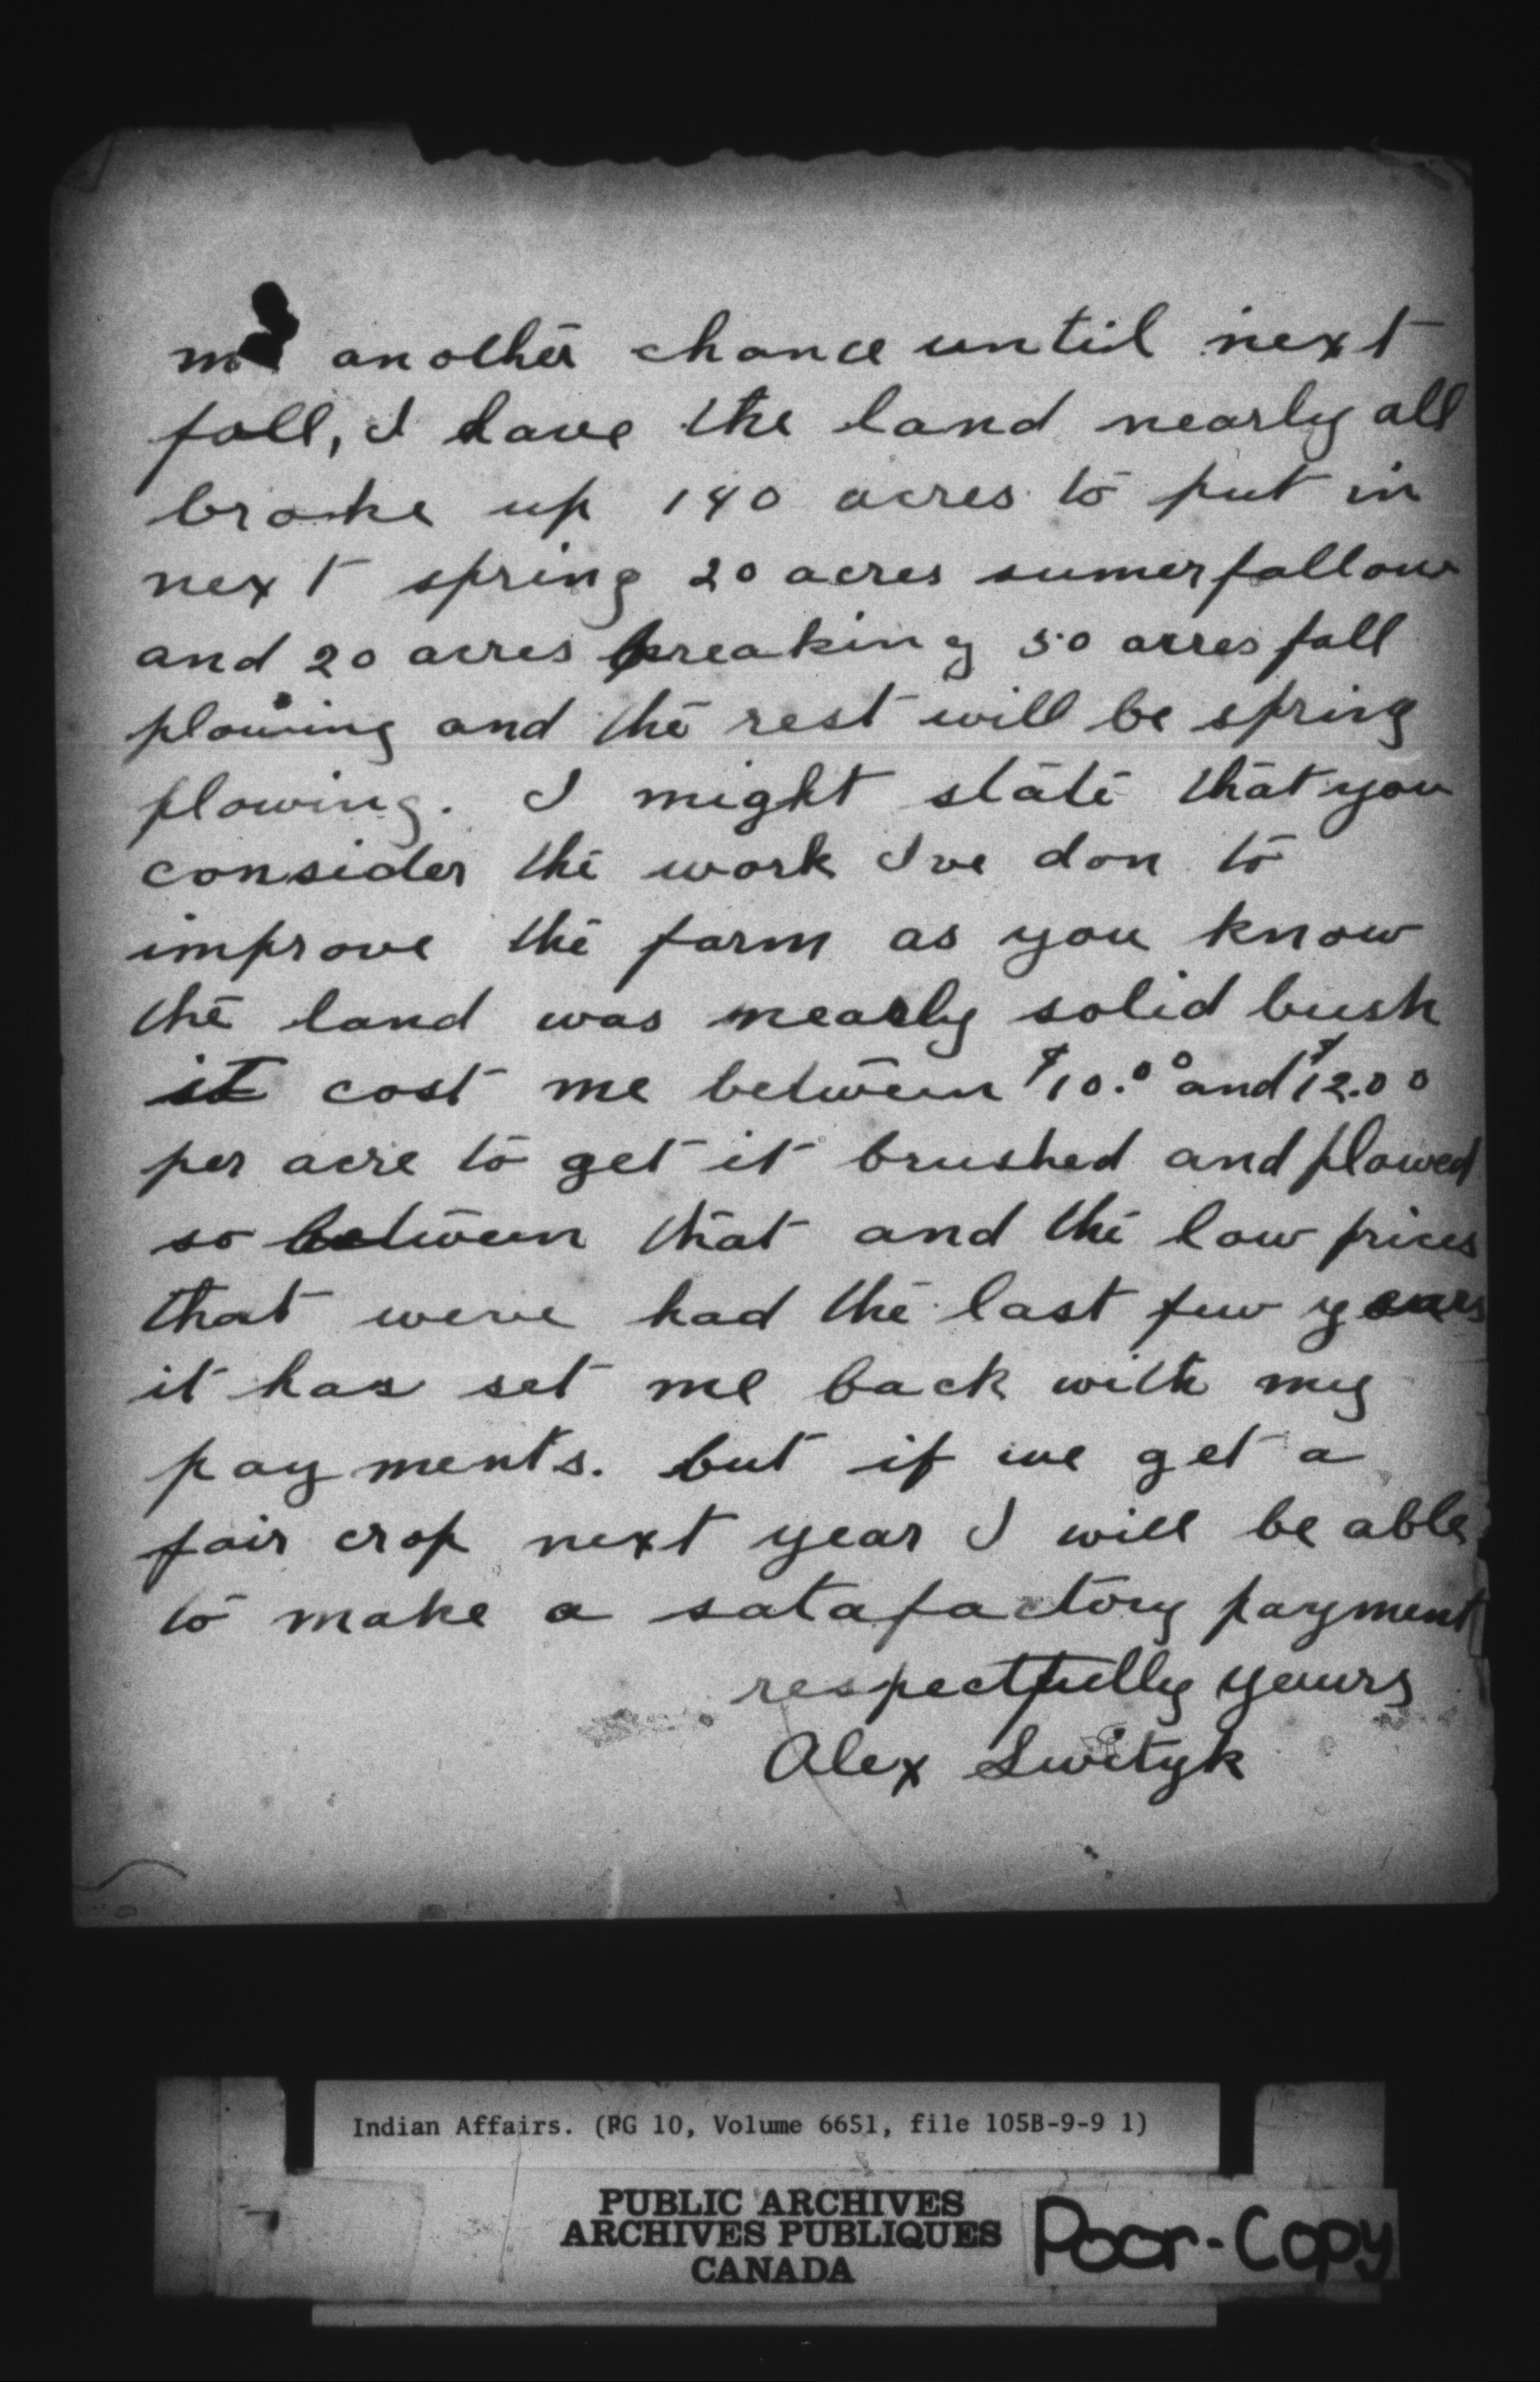 me another chance until next
fall, I have the land nearly all
broke up 140 acres to put in
next spring 20 acres sumerfallow
and 20 acres breaking 50 acres fall
plowing and the rest will be spring
plowing. I might state that you
consider the work I've don to
improve the farm as you know
the land was nearly solid bush
it cost me between $10.00 and $12.00
per acre to get it brushed and plowed
so between that and the low prices
that weve had the last few years
it has set me back with my
payments. but if we get a
fair crop next year I will be able
to make a satafactory payment
respectfully yours
Alex Swityk
Indian Affairs. (RG 10, Volume 6651, file 105B-9-9 1)
PUBLIC ARCHIVES
ARCHIVES PUBLIQUES
CANADA
Poor-Copy